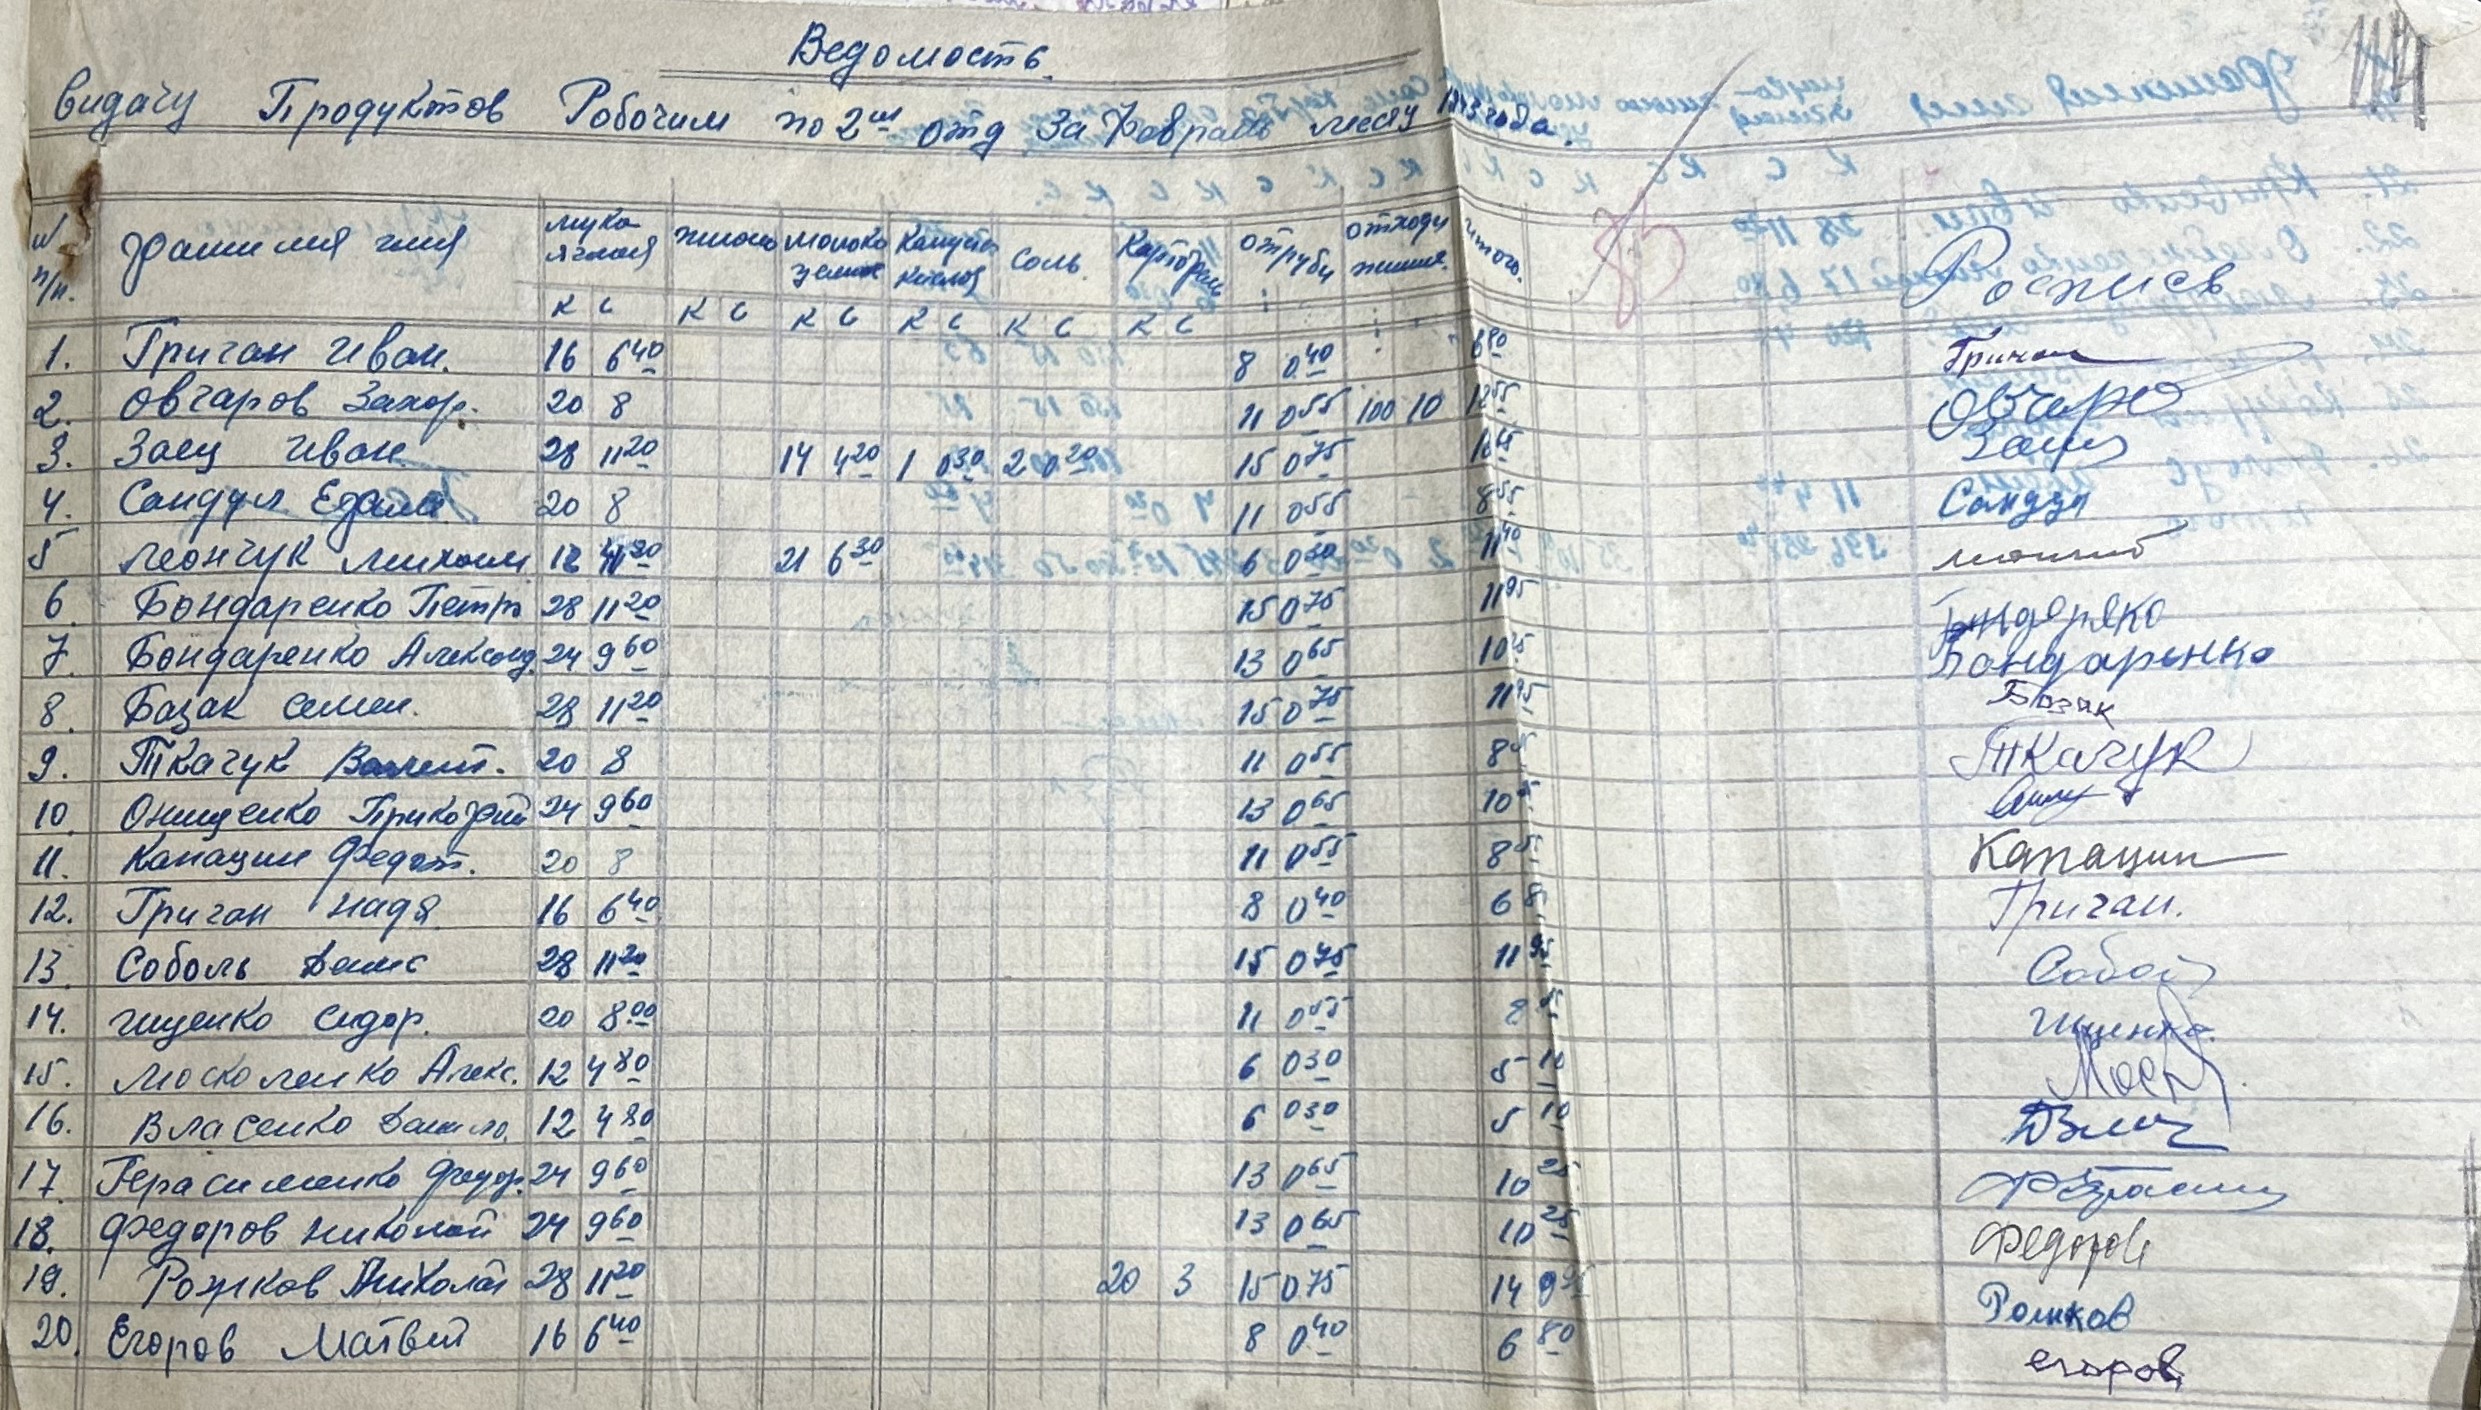 Ведомость.
видачу Продуктов Робочим по 2му отд за Февраль месяц 1943 года.
№ п/п. Фамилия имя мука ячная пшоно молоко капуста кислая соль. Картофель отруби отходи итого. Роспись
К С К С К С К С К С К С
1. Григан Иван. 16 6 40 8 0 40 6 80 Григан
2. Овчаров Захор. 20 8 11 0 55 100 10 18 55 Овчаро
3. Заец Иван. 28 11 20 14 4 20 1 0 30 2 0 20 15 0 75 16 65 Заец
4. Сандул 20 8 11 0 55 8 55 Сандул
5 Леончук Михаил 12 4 80 21 6 30 6 0 30 11 40
6. Бондаренко Петр 28 11 20 15 0 75 11 95 Бондаряко
7. Бондаренко Александ. 24 9 60 13 0 65 10 25 Бондаренко
8. Базак Семен. 28 11 20 15 0 75 11 95 Базак
9. Ткачук Валент. 20 8 11 0 55 8 55 Ткачук
10. Онищенко Прикофий 24 9 60 13 0 65 10 25
11. Капацин Федот. 20 8 11 0 55 8 55 Капацин
12. Григан Надя 16 6 40 8 0 40 6 80 Григан.
13. Соболь Денис 28 11 20 15 0 75 11 95 Собол
14. Ищенко Сидор. 20 8 00 11 0 55 8 55 Ищенко.
15. Москаленко Алекс. 12 4 80 6 0 30 5 10 Моск
16. Власенко Данило. 12 4 80 6 0 30 5 10 ДВлас
17. Герасименко Федор. 24 9 60 13 0 65 10 25
18. Федоров Николай 24 9 60 13 0 65 10 25 Федоров
19. Рожков Николай 28 11 20 20 3 15 0 75 14 95 Рожков
20. Егоров Матвей 16 6 40 8 0 40 6 80 егоров